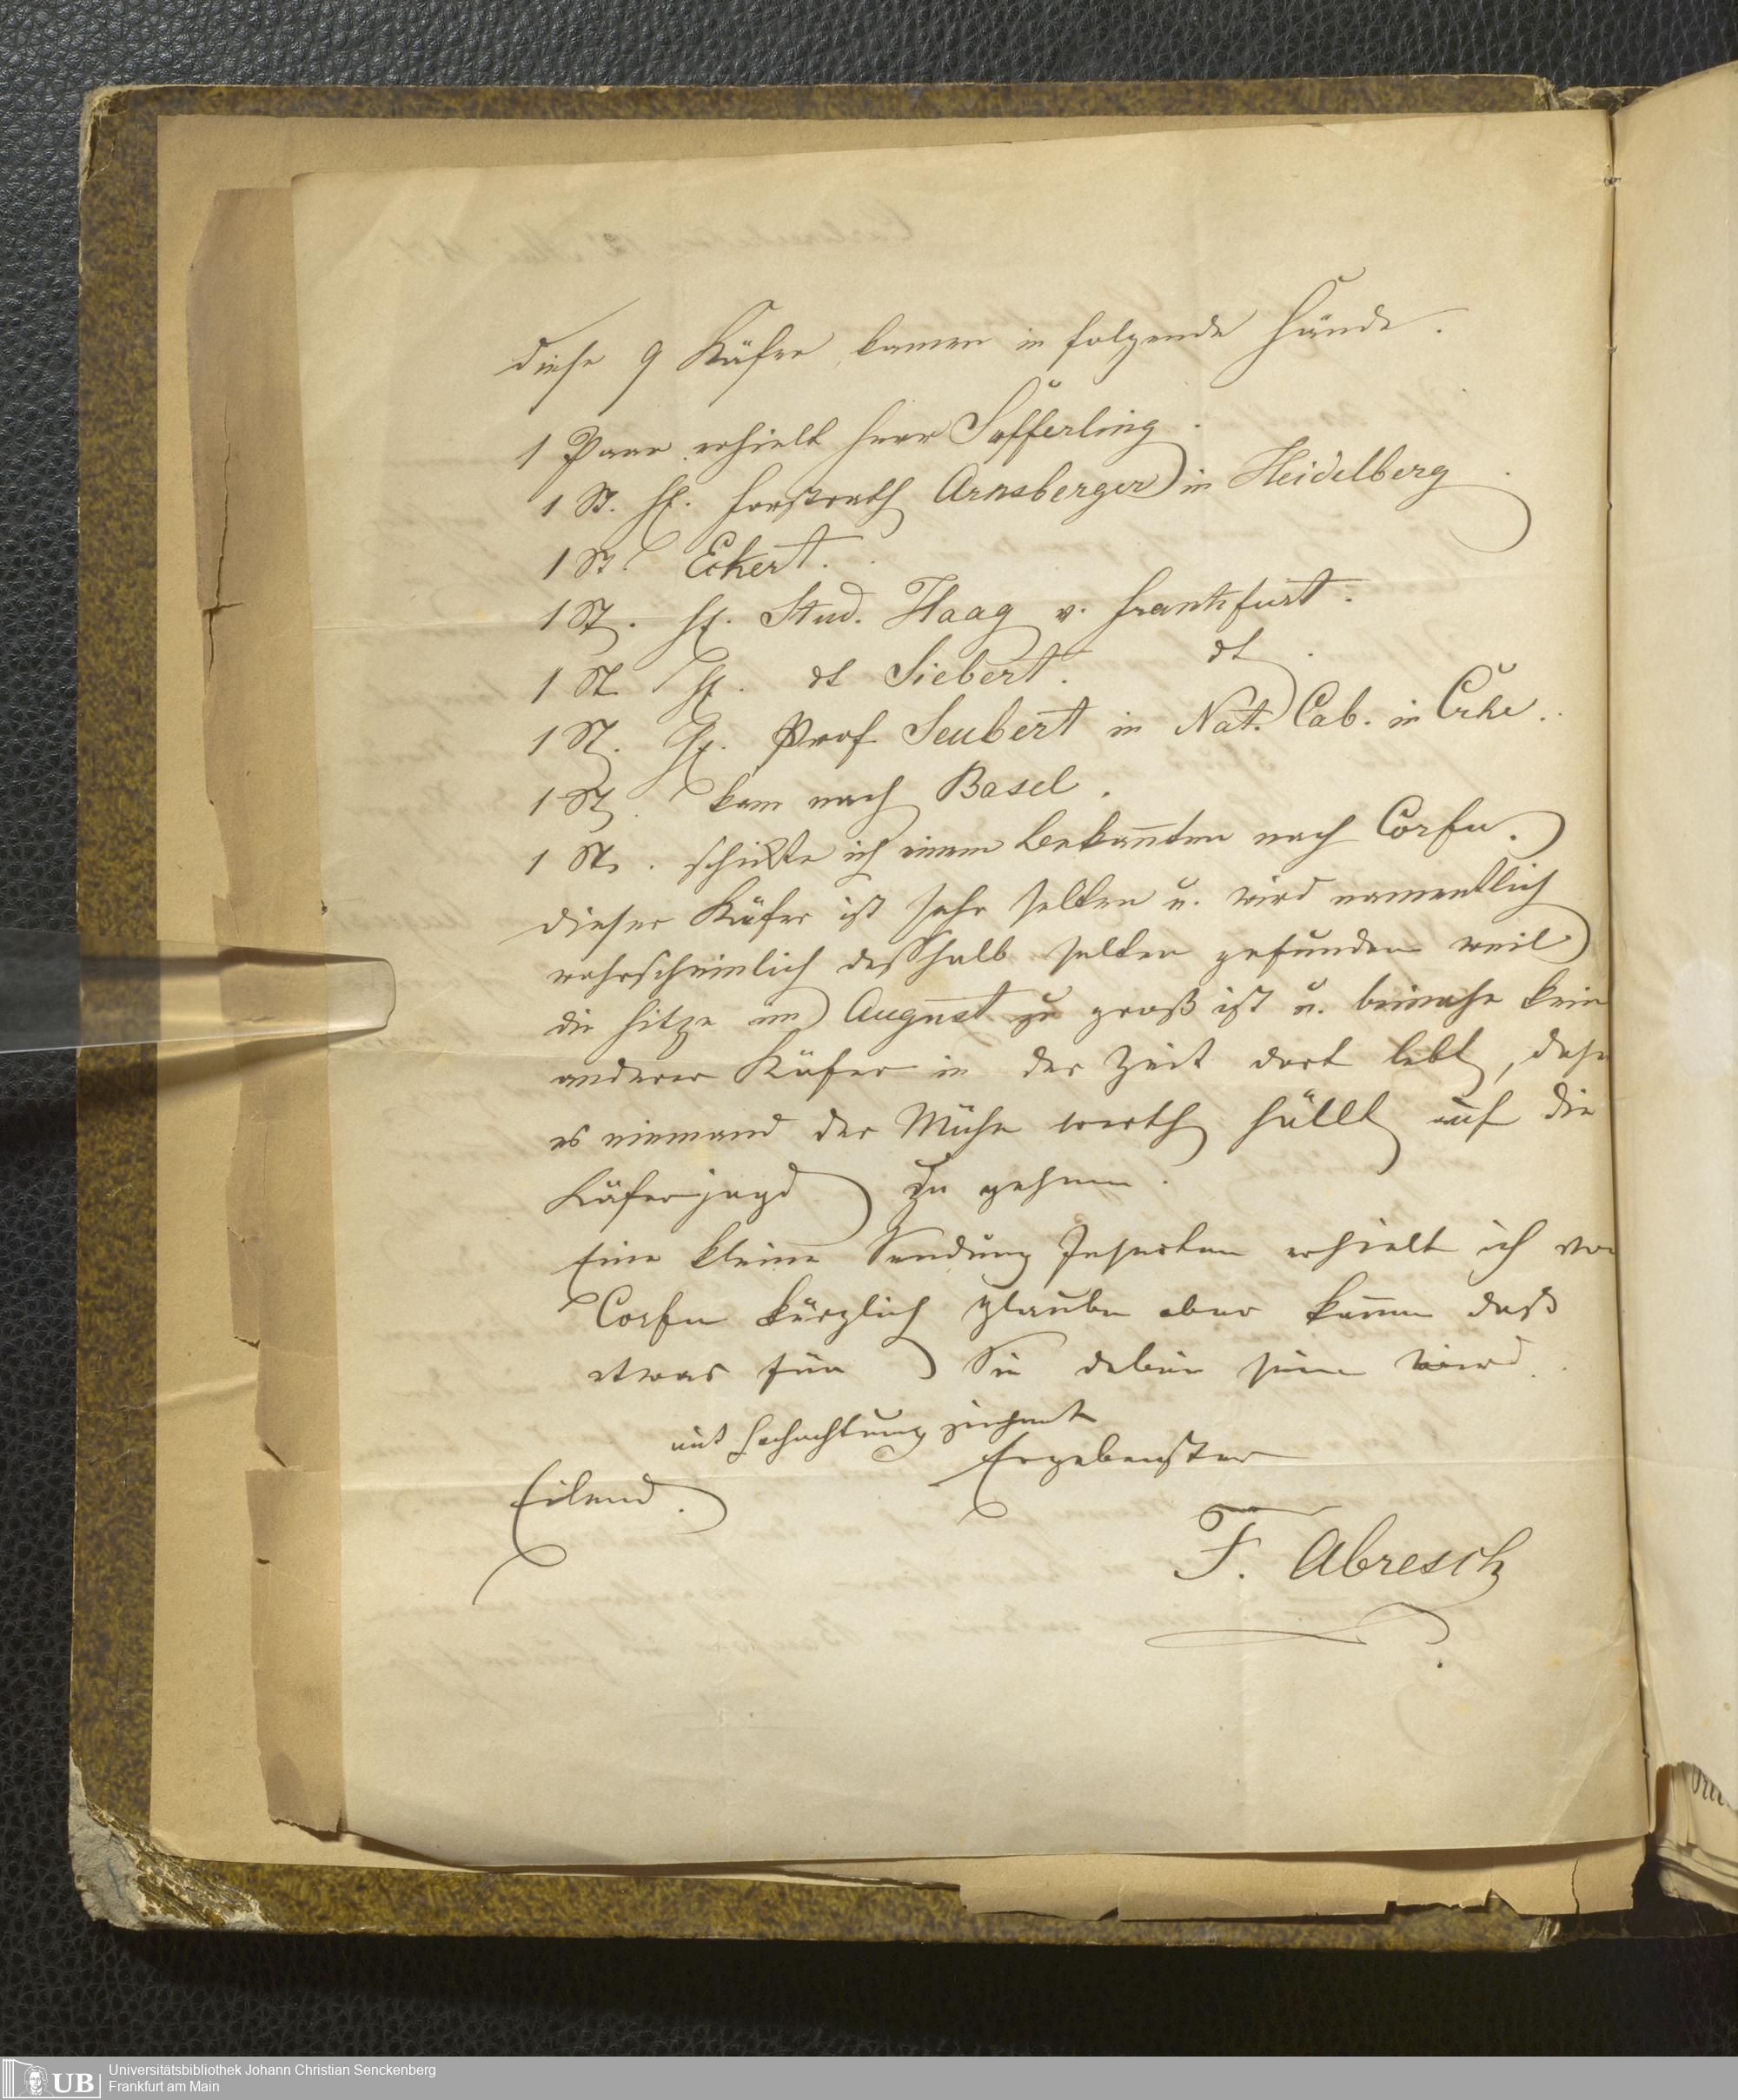 diese 9 Käfer kamen in folgende Hände.
1 Paar erhielt Herr Sefferling.
1 St. H. Forstrath Arnsberger in Heidelberg
1 St. Eckert.
1 St. H. Stud. Haag v. Frankfurt.
1 St H. dt Siebert. dt
1 St. H. Prof Seubert in Nat. Cab. in Crhe.
1 St. kam nach Basel.
1 St. schickte ich einem Bekan̄ten nach Corfu.
Dieser Käfer ist sehr selten u. wird namentlich
wahrscheinlich deßhalb selten gefunden weil
die Hitze im August zu groß ist u. beinahe kein
anderer Käfer in der Zeit dort lebt, daß
es niemand der Mühe werth hällt auf die
Käferjagd zu gehen.
Eine kleine Sendung Insecten erhielt ich von
Corfu kürzlich glaube aber kaum daß
etwas für Sie dabei sein wird.
mit Hochachtung zeichnet
Ergebenster
Eilend.
F. Abresch
UB Universitätsbibliothek Johann Christian Senckenberg
Frankfurt am Main